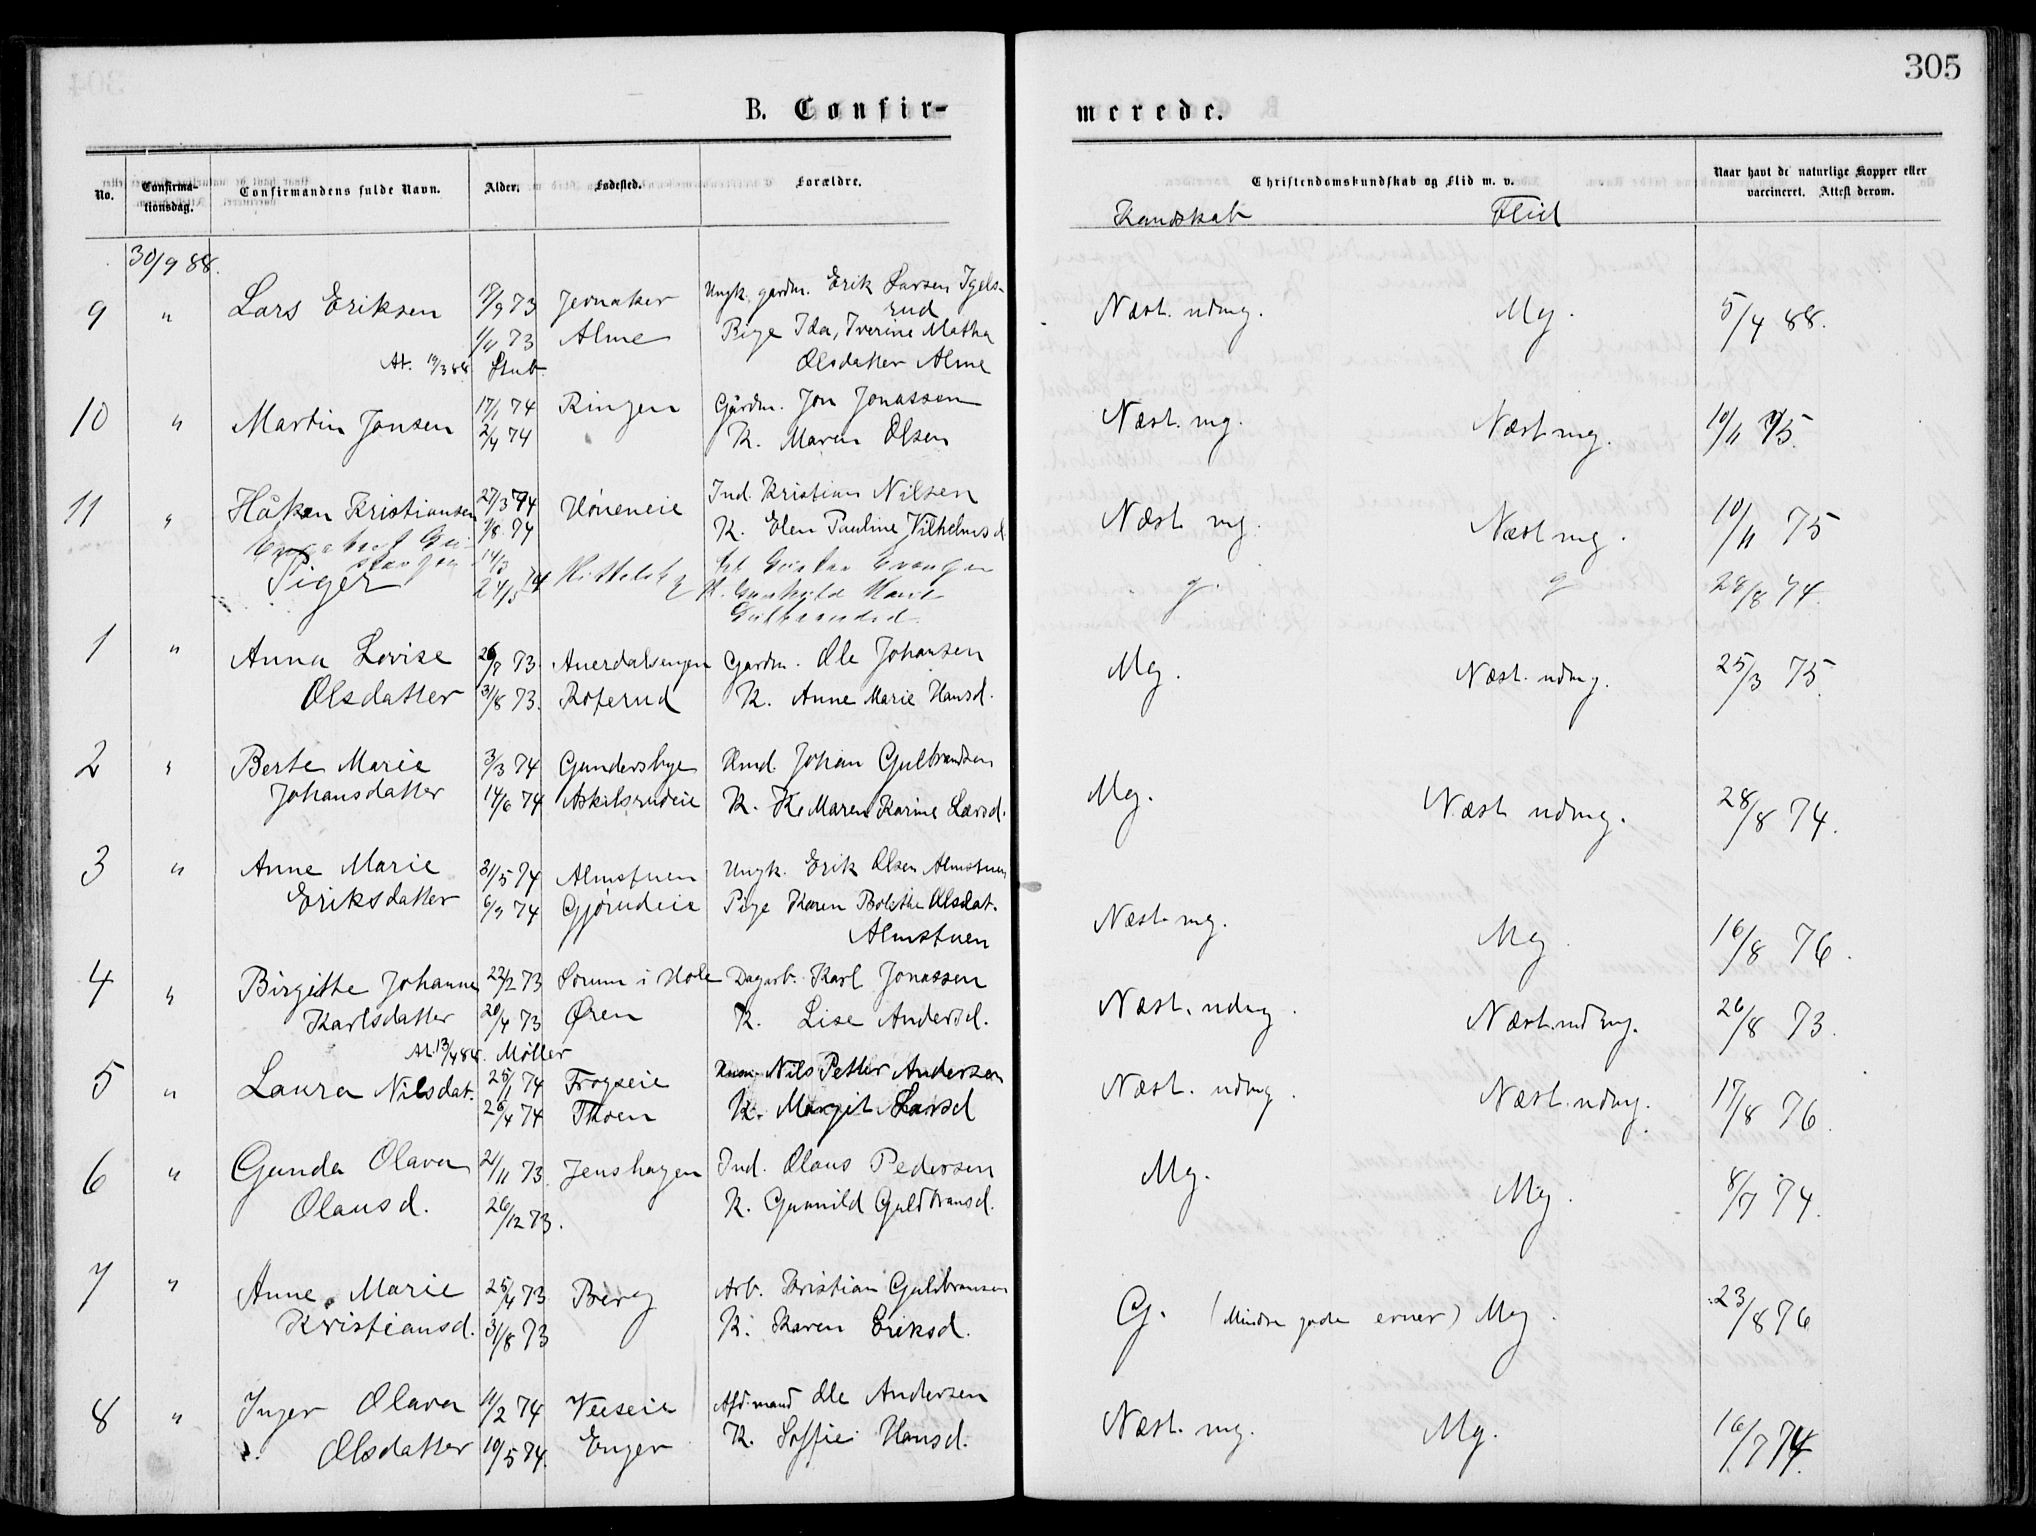 305
B. Confir-
merede.
No. Confirma-tionsdag. Confirmandens fulde Navn. Alder. Fødested. Forældre.
Christendomskundskab og Flid m. v. Naar havt de naturlige Kopper eller vaccineret. Attest derom.
Kundskab Flid
30/9 88.
9 " Lars Eriksen 17/9 73 Jevnaker Ungk. gardm. Erik Larsen Igels-rud
1/11 73 Alme Pige Ida, Iverine Mathea
At. 19/3 88 Stub. Olsdatter Alme
Næst. udmg. Mg. 5/4 88.
10 " Martin Jonsen 17/1 74 Ringen Gårdm. Jon Jonassen
2/4 74 K. Maren Olsen
Næst. mg. Næst mg. 10/11 75.
11 " Håkon Kristiansen 27/3 74 Høneneie Ind. Kristian Nilsen
7/8 74 K. Elen Pauline Vilhelmsd.
Næst mg. Næst mg. 10/11 75
14/3
24/5 74
K. Gunhild Marie
Gulbrandsd.
g. g 28/8 74.
Piger
1 " Anna Lovise 26/7 73. Auerdalsengen Gardm. Ole Johansen
Olsdatter 31/8 73. Koperud K. Anne Marie Hansd.
Mg. Næst. udmg. 25/3 75.
2 " Berte Marie 3/3 74 Gundersbye Hmd. Johan Gulbrandsen
Johansdatter 14/6 74 Askilsrudeie K. K. Maren Karine Larsd.
Mg. Næst udmg. 28/8 74.
3 " Anne Marie 31/5 74 Almstuen Ungk. Erik Olsen Almstuen
Eriksdatter 6/9 74 Gjørudeie Pige Karen Bolethe Olsdat.
Almstuen
Næst mg. Mg 16/8 76.
4 " Birgitte Johanne 22/2 73 Sørum i Hole Dagarb. Karl Jonassen
Karlsdatter 20/4 73 Øren K. Lise Andersd.
Næst. udmg. Næst. udmg. 26/8 73.
At. 13/4 88. Møller
5 " Laura Nilsdat. 25/1 74 Frogseie Nils Petter Andersen
26/4 74 Thoen K. Margit Larsd
Næst. udmg. Næst. udmg. 17/8 76.
6 " Gunda Olava 21/11 73. Jenshagen Ind. Olaus Pedersen
Olausd. 26/12 73. K. Gunnild Guldbransd.
Mg. Mg. 8/7 74.
7 " Anne Marie 25/4 73 Berg Arb. Kristian Guldbransen
Kristiansd. 31/8 73 K. Karen Eriksd.
G. (Mindre gode evner) Mg. 23/8 76
8 " Inger Olava 11/2 74 Veiseie Afd. mand Ole Andersen
Olsdatter 10/5 74. Enger K. Soffie Hansd.
Næst. mg. Mg. 16/7 74.